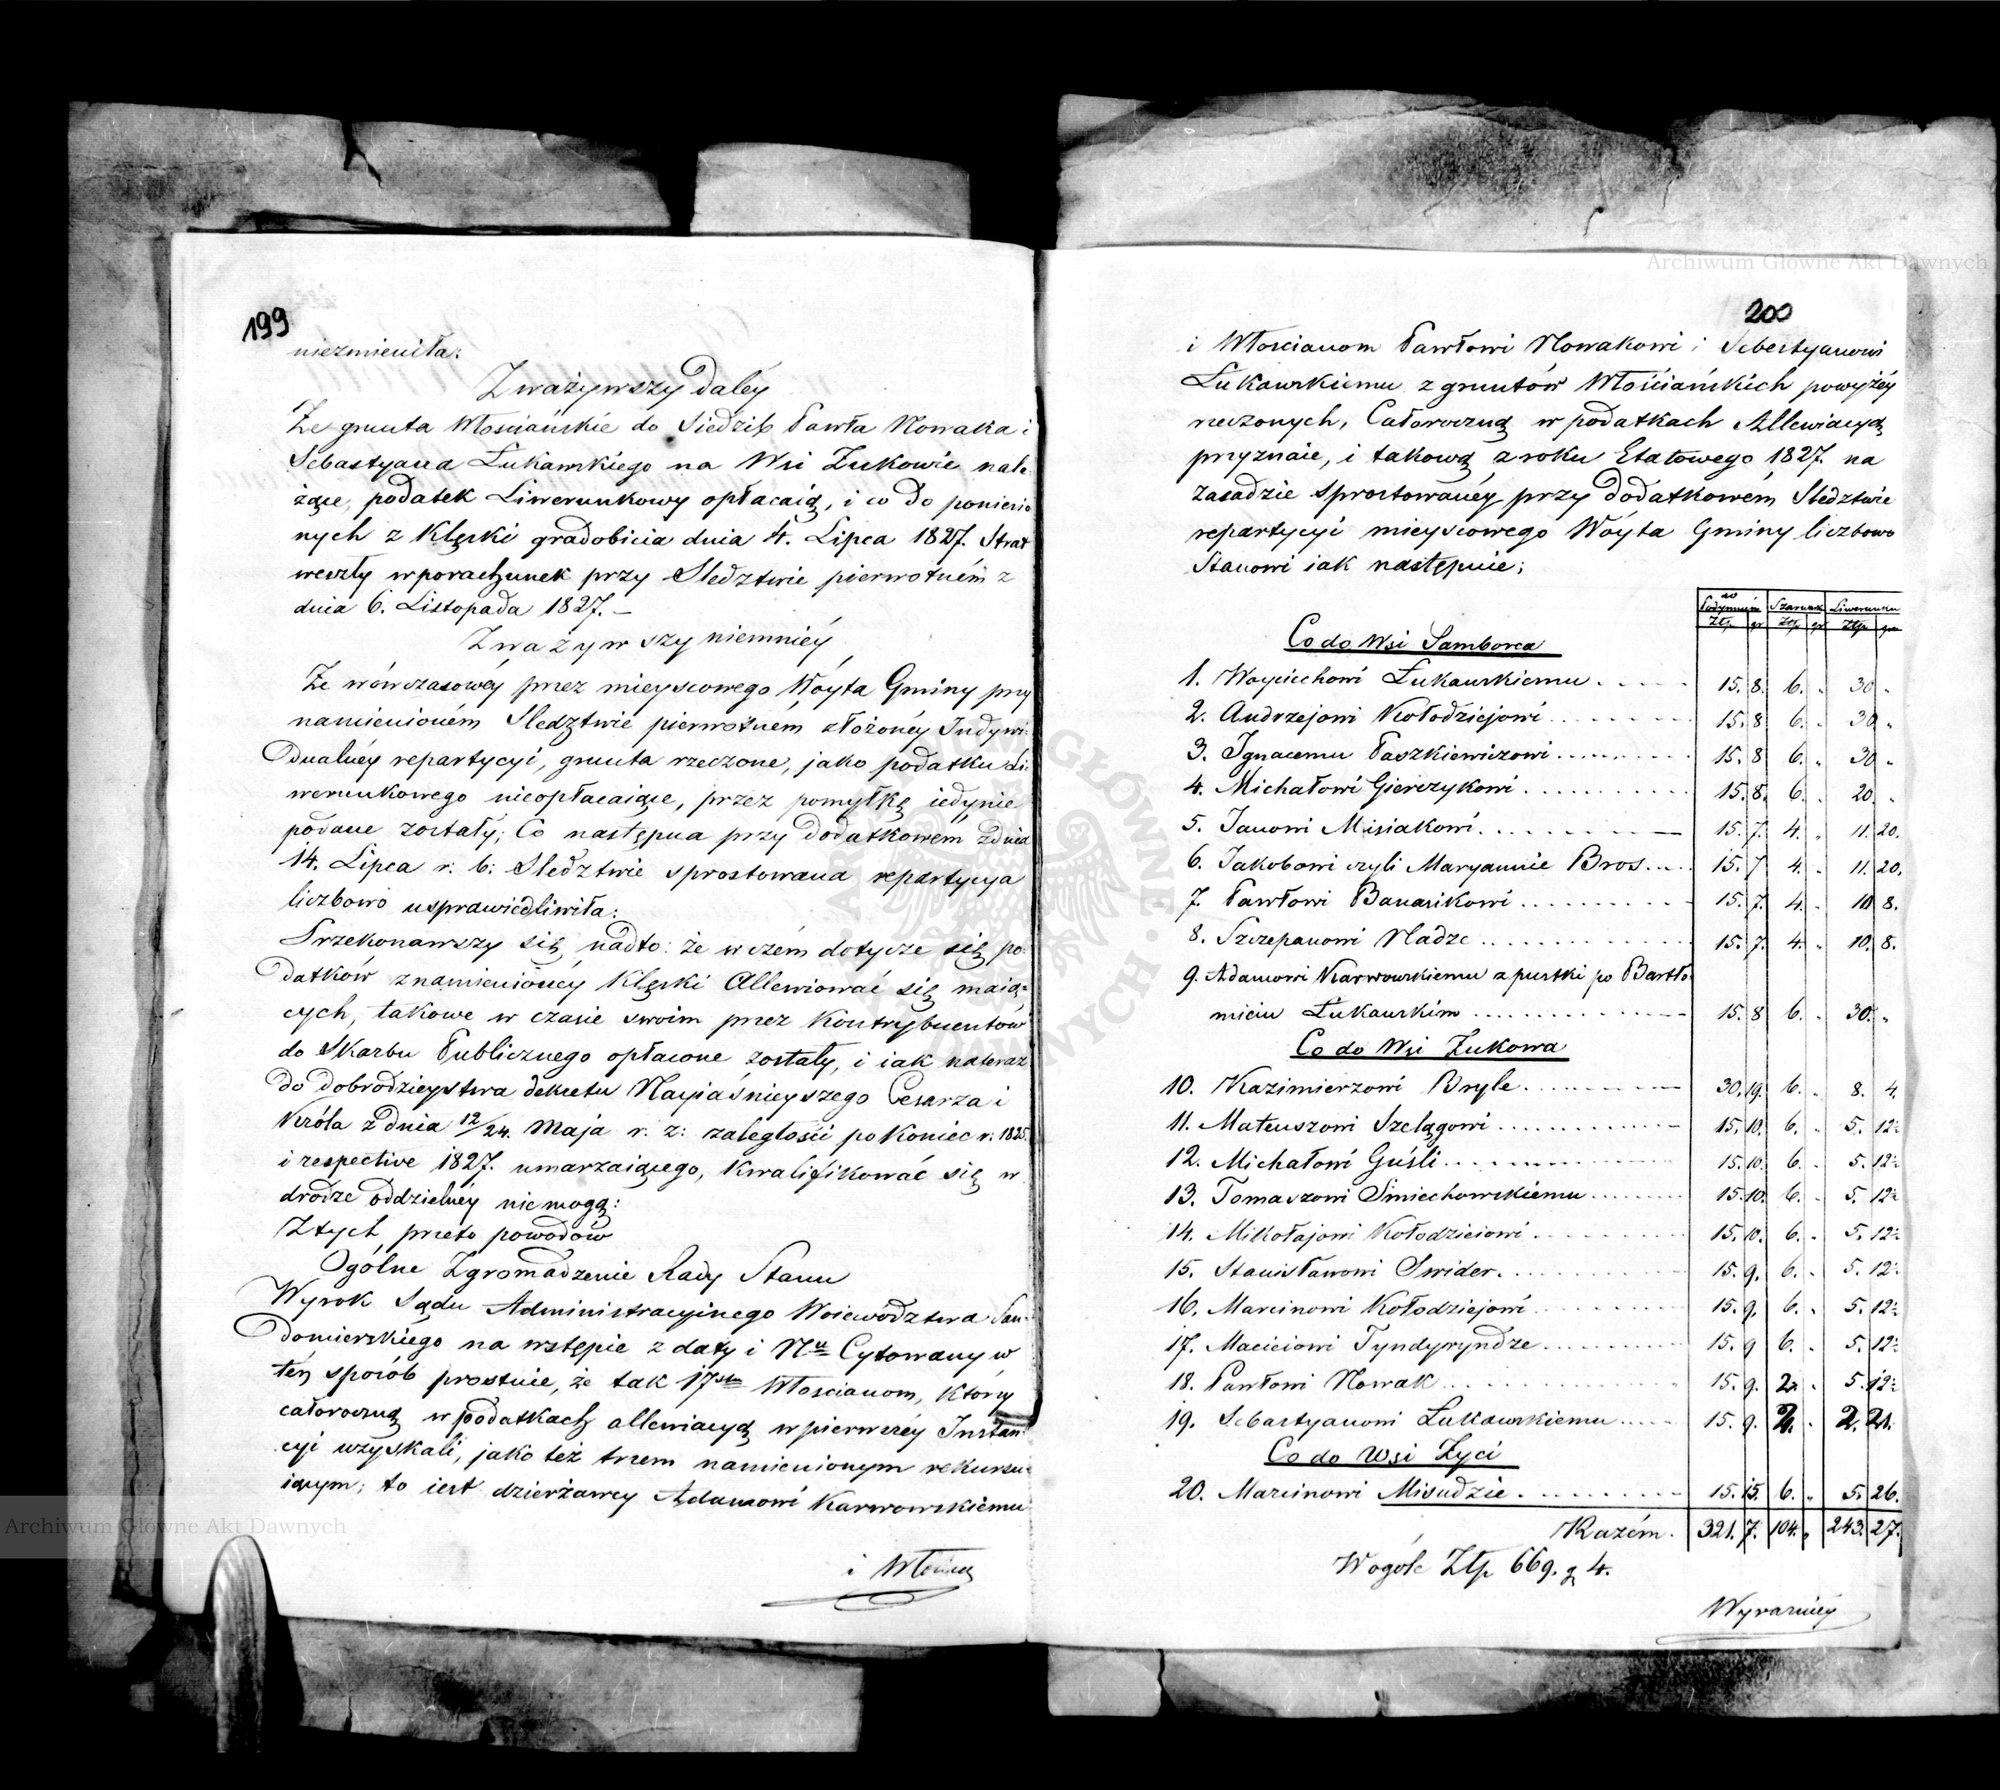 199
niezmieniła:
Zważywszy daléy
Że grunta Włościańskie do Siedzib Pawła Nowaka i
Sebastyana Łukawskiego na Wsi Żukowie nale
żące, podatek Liwerunkowy opłacaią, i co do poniesio
nych z Klęski gradobicia dnia 4. Lipca 1827. Strat
weszły w porachunek przy Sledztwie pierwotném z
dnia 6. Listopada 1827. —
Zważywszy niemniéy
Że wówczasowéy przez mieyscowego Wóyta Gminy przy
namienioném Sledztwie pierwotnem złożonéy Indywi:
dualnéy repartycyi, grunta rzeczone, jako podatku Li:
werunkowego nieopłacaiące, przez pomyłkę iedynie
podane zostały; Co następna przy dodatkowém z dnia
14. Lipca r. b: Sledztwie sprostowana repartycya
liczbowo usprawiedliwiła:
Przekonawszy się nadto: że w czém dotycze się po:
datków z namienionéy Klęski Allewiować się maią=
cych, takowe w czasie swoim przez Kontrybuentów
do Skarbu Publicznego opłacone zostały, i iak nateraz
do dobrodzieystwa dekretu Nayiaśnieyszego Cesarza i
Króla z dnia 12/24. Maja r. z: zaległości po Koniec r. 1825.
i respective 1827. umarzaiącego, kwalifikować się w
drodze oddzielnéy nie mogą:
Z tych przeto powodów
Ogólne Zgromadzenie Rady Stanu
Wyrok Sądu Administracyinego Woiewództwa San:
domierskiego na wstępie z daty i Nru Cytowany w
tén sposób prostuie, że tak 17stu Włościanom, którzy
całoroczną w podatkach allewiacyą w pierwszéy Instan
cyi uzyskali, jako też trzem namienionym rekursu=
iącym; to iest dzierżawcy Adamowi Karwowskiemu
i Włościa
200
i Włościanom Pawłowi Nowakowi i Sebestyanowi
Łukawskiemu z gruntów Włościańskich powyżéy
rzeczonych, Całoroczną w podatkach Allewiacyą
przyznaie, i takową z roku Etatowego 1827. na
zasadzie sprostowanéy przy dodatkowém Sledztwie
repartycyi mieyscowego Wóyta Gminy liczbowo
Stanowi iak następuie;
do
Podymném Szarwark Liwerunku
Złp. gr Złp gr Złp. gr
Co do Wsi Samborca
1. Woyciechowi Łukawskiemu . . . . 15. 8. 6. „ 30 „
2. Andrzejowi Kołodziejowi . . . . 15. 8 6. „ 30 „
3. Ignacemu Paszkiewiczowi . . . . 15. 8 6. „ 30 „
4. Michałowi Gierczykowi . . . . 15. 8. 6. „ 20. „
5. Janowi Misiakowi . . . . 15. 7. 4. „ 11. 20.
6. Jakobowi czyli Maryannie Bros . . . . 15. 7 4. „ 11. 20.
7. Pawłowi Banasikowi . . . . 15. 7. 4. „ 10 8.
8. Szczepanowi Nadze . . . . 15. 7. 4. „ 10. 8.
9. Adamowi Karwowskiemu z pustki po Bartło
mieiu Łukawskim . . . . 15. 8 6. „ 30. „
Co do Wsi Żukowa
10. Kazimierzowi Bryle . . . . 30. 19. 6. „ 8. 4.
11. Mateuszowi Szelągowi . . . . 15. 10. 6. „ 5. 12½
12. Michałowi Guśli . . . . 15. 10. 6. „ 5. 12½
13. Tomaszowi Smiechowskiemu . . . . 15. 10. 6. „ 5. 12½
14. Mikołajowi Kołodzieiowi . . . . 15. 10. 6. „ 5. 12½
15. Stanisławowi Swider . . . . 15. 9. 6. „ 5. 12½
16. Marcinowi Kołodziejowi . . . . 15. 9. 6. „ 5. 12½
17. Macieiowi Tyndyryndze . . . . 15. 9 6. „ 5. 12½
18. Pawłowi Nowak . . . . 15. 9. 2. „ 5. 12½
19. Sebastyanowi Łukawskiemu . . . . 15. 9. 2. „ 2. 21.
Co do Wsi Życi
20. Marcinowi Misudzie . . . . 15. 15. 6. „ 5. 26.
Razém. 321. 7. 104. „ 243. 27.
Wogóle Złp. 669. g 4.
Wyraźniéy
Archiwum Główne Akt Dawnych
Archiwum Główne Akt Dawnych
ARCHIWUM GŁÓWNE · AKT DAWNYCH ·